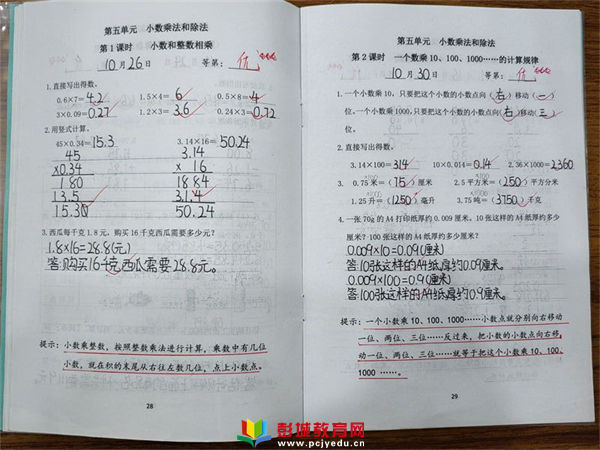 第五单元 小数乘法和除法
第1课时 小数和整数相乘
10月26日 等第：优
1.直接写出得数。
0.6×7=4.2 1.5×4=6 0.5×8=4
3×0.09=0.27 1.2×3=3.6 0.24×3=0.72
2.用竖式计算。
45×0.34=15.3 3.14×16=50.24
45 3.14
×0.34 × 16
180 1884
13.5 3.1.4
15.30 50.24
3.西瓜每千克1.8元，购买16千克西瓜需要多少元？
1.8×16=28.8(元)
答:购买16千克西瓜需要28.8元。
提示：小数乘整数，按照整数乘法进行计算，乘数中有几位
小数，就在积的末尾从右往左数几位，点上小数点。
28
第五单元 小数乘法和除法
第2课时 一个数乘10、100、1000……的计算规律
10月30日 等第：优
1.一个小数乘10，只要把这个小数的小数点向(右)移动(一)
位。一个小数乘1000，只要把这个小数的小数点向(右)移动(三)
位。
2.直接写出得数。
3.14×100=314 10×0.014=0.14 2.36×1000=2360
3. 0.75米=(75)厘米 2.5平方米=(250)平方分米
1.25升=(1250)毫升 3.75吨=(3750)千克
4.一张70g的A4打印纸厚约0.009厘米。10张这样的A4纸厚约多少
厘米？100张这样的A4纸厚约多少厘米？
0.009×10=0.09(厘米)
答:10张这样的A4纸厚约0.09厘米。
0.009×100=0.9(厘米)
答:100张这样的A4纸厚约0.9厘米。
提示：一个小数乘10、100、1000……小数点就分别向右移动
一位、两位、三位……反过来，把小数的小数点向右移
动一位、两位、三位……就等于把这个小数乘10、100、
1000……。
29
彭城教育网
www.pcjyedu.cn